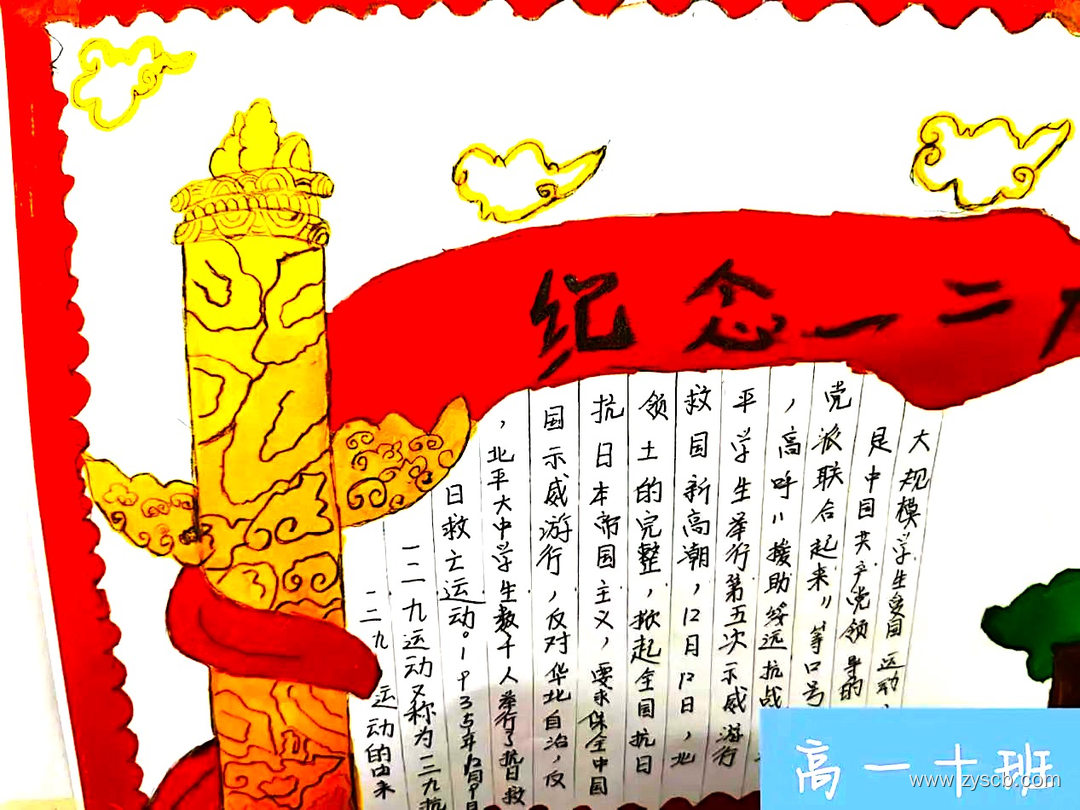 纪念一二
一二九运动的由来
一二九运动又称为一二九抗
日救亡运动。1935年12月9日
，北平大中学生数千人举行了抗日救
国示威游行，反对华北自治，反
抗日本帝国主义，要求保全中国
领土的完整，掀起全国抗日
救国新高潮，12日12日，北
平学生举行第五次示威游行
，高呼"援助绥远抗战
党派联合起来"等口号
是中国共产党领导的
大规模学生爱国运动，
高一十班
www.zyscb.com